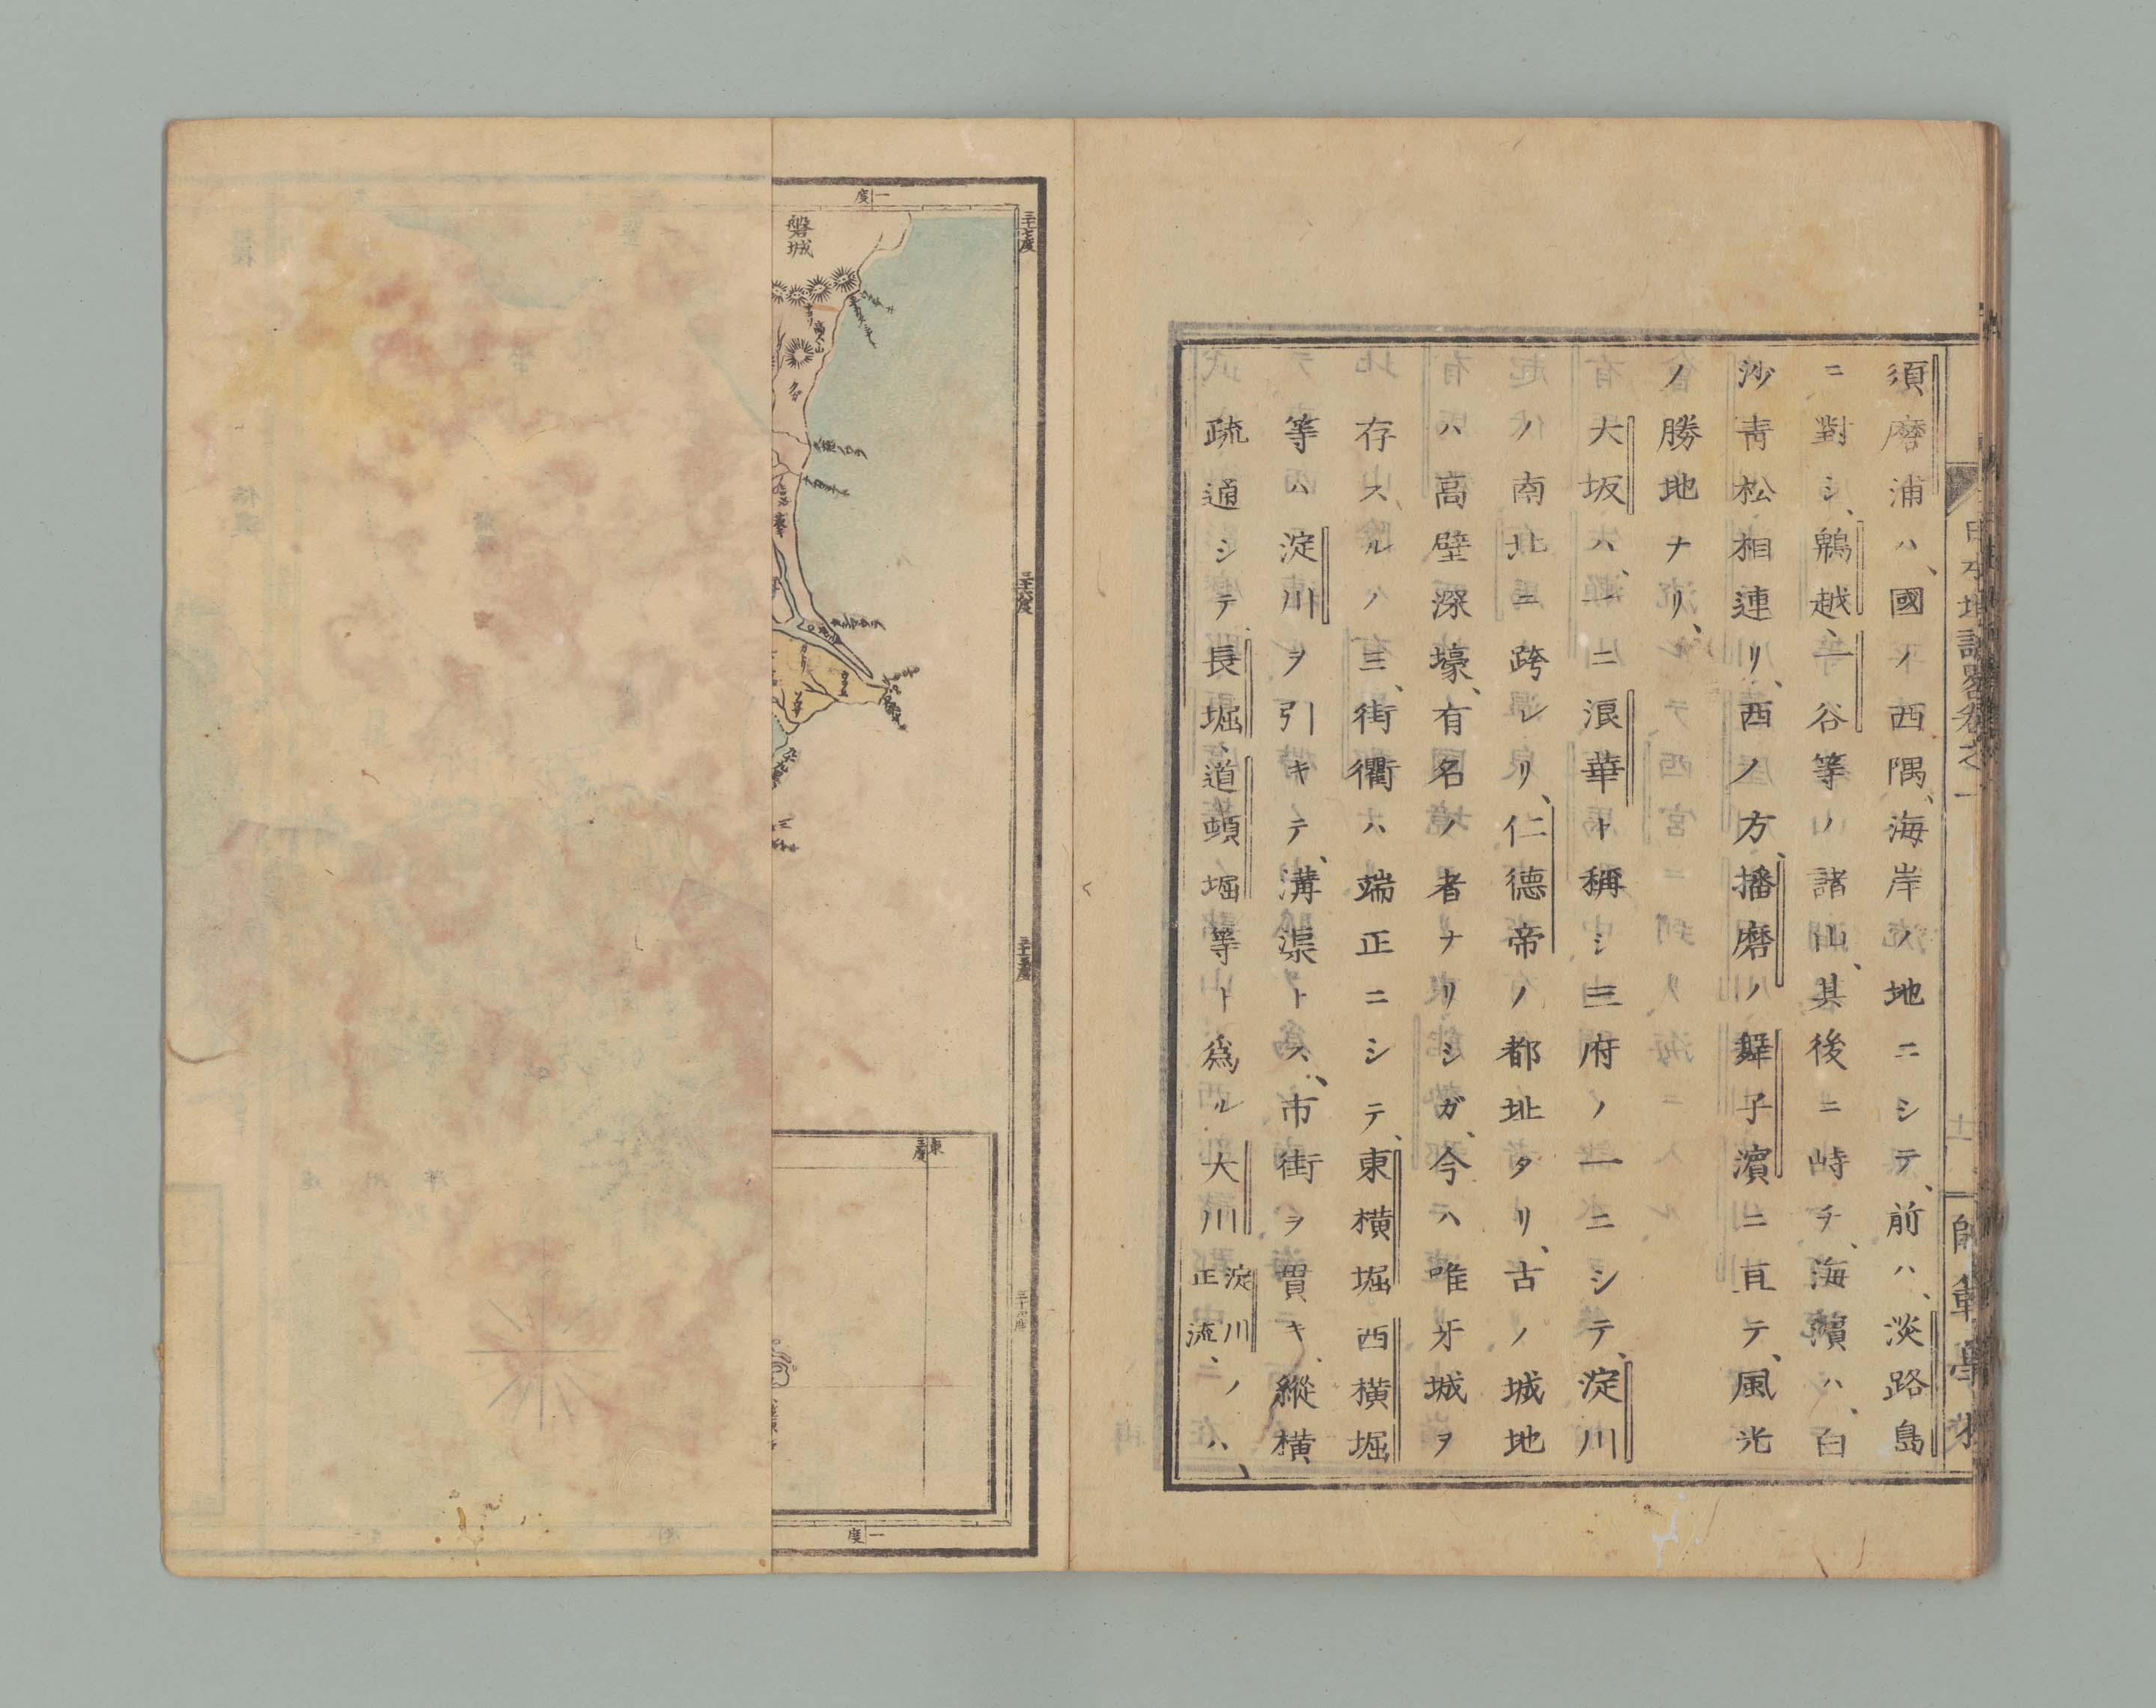 日本地誌畧卷之一
師範學校
須磨浦ハ、國ノ西隅、海岸ノ地ニシテ、前ハ、淡路島
ニ對シ、鵯越、一谷等ノ諸山、其後ニ峙チ、海濱ハ、白
沙青松相連リ、西ノ方、播磨ノ舞子濱ニ亘テ、風光
ノ勝地ナリ、
大坂ハ、一ニ浪華ト稱シ三府ノ一ニシテ、淀川
ノ南北ニ跨レリ、仁德帝ノ都址タリ、古ノ城地
ハ高壁深壕、有名ノ者ナリシガ、今ハ唯牙城ヲ
存スルノミ、街衢ハ端正ニシテ、東横堀西横堀
等ハ淀川ヲ引キテ、溝渠トス、市街ヲ貫キ、縱横
疏通シテ、長堀、道頓堀等ト爲ル大川淀川正流ノハ、
一度
三十七度
磐城
高人山
三十六度
三十五度
東
三十四度
一度